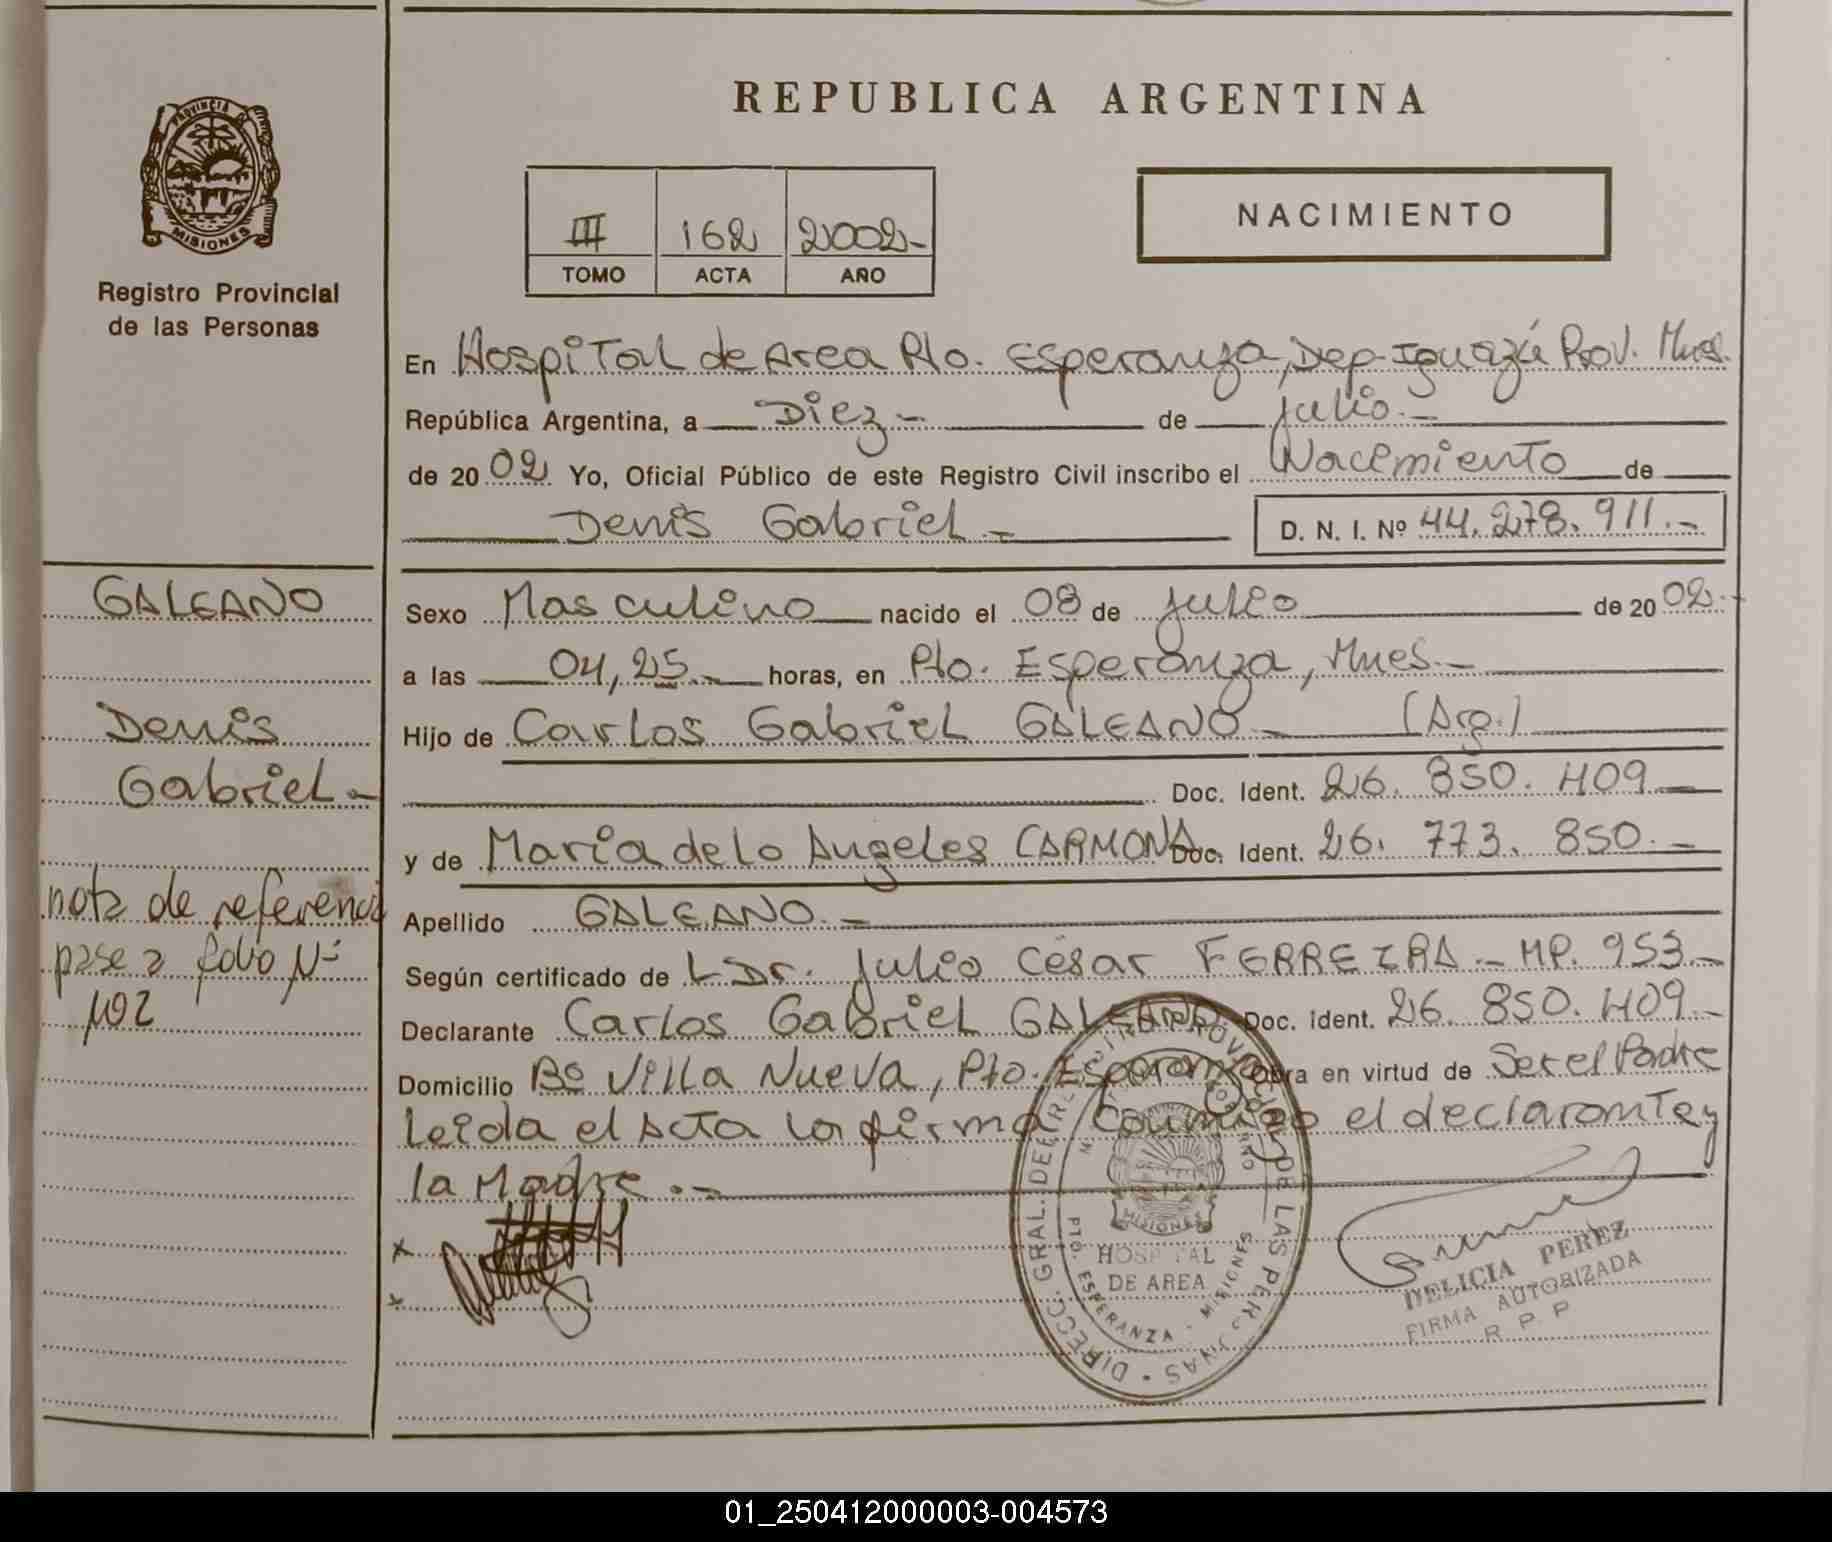 PROVINCIA DE
MISIONES
Registro Provincial
de las Personas
REPUBLICA ARGENTINA
III 162 2002-
TOMO ACTA AÑO
NACIMIENTO
En Hospital de Area Pto. Esperanza, Dep. Iguazú Prov. Mnes.
República Argentina, a Diez - de julio.-
de 2002 Yo, Oficial Público de este Registro Civil inscribo el Nacimiento de
Denis Gabriel.- D. N. I. Nº 44.278.911.-
GALEANO
Denis
Gabriel-
nota de referencia
pase a folio Nº
102
Sexo Masculino nacido el 08 de julio de 2002.-
a las 04,25.- horas, en Pto. Esperanza, Mnes.-
Hijo de Carlos Gabriel GALEANO.- (Arg.)
Doc. Ident. 26.850.409.-
y de Maria de lo Angeles CARMONA Doc. Ident. 26.773.850.-
Apellido GALEANO.-
Según certificado de Dr. Julio César FERREIRA.- MP. 953.-
Declarante Carlos Gabriel GALEANO Doc. Ident. 26.850.409.-
Domicilio Bº Villa Nueva, Pto. Esperanza Obra en virtud de Ser el Padre
Leida el Acta la firma conmigo el declarante y
la Madre.-
x
x
MISIONES
HOSPITAL
DE AREA
PTO. ESPERANZA - MISIONES
DELICIA PEREZ
FIRMA AUTORIZADA
R P P
01_250412000003-004573